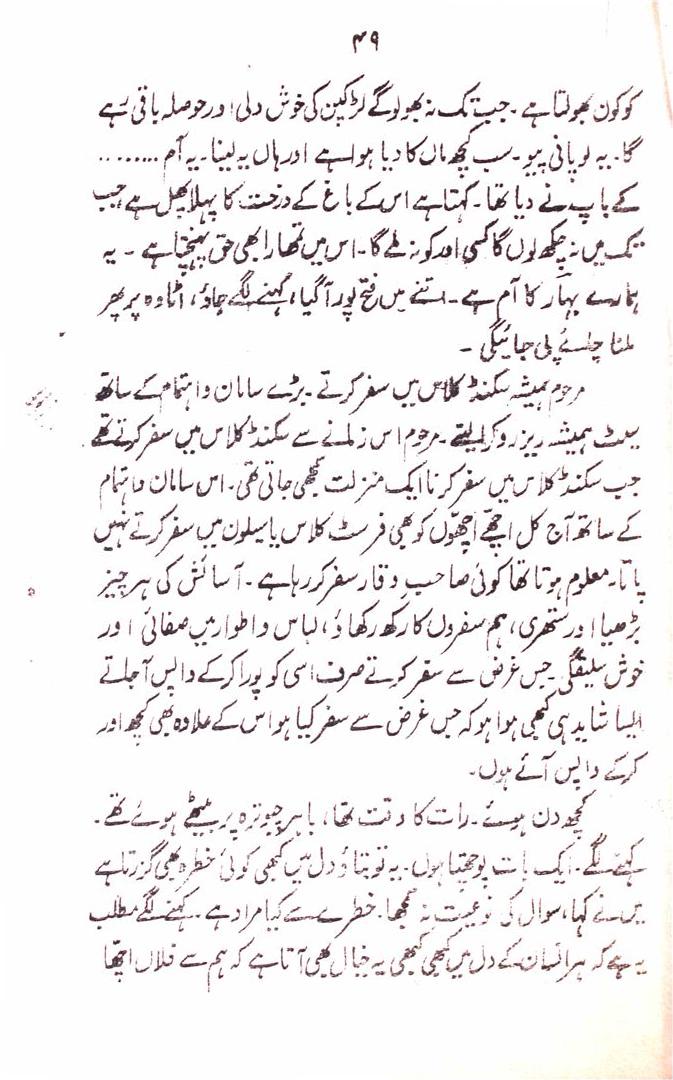 ۴۹
کو کون بھولتا ہے۔ جب تک نہ بھولو گے لڑکپن کی خوش دلی اور حوصلہ باقی رہے
گا۔ یہ لو پانی پیو۔ سب کچھ ماں کا دیا ہوا ہے اور ہاں یہ لینا۔ یہ آم ........
کے باپ نے دیا تھا۔ کہتا ہے اس کے باغ کے درخت کا پہلا پھل ہے جب
تک میں نہ چکھ لوں گا کسی اور کو نہ ملے گا۔ اس میں تمھارا بھی حق پہنچتا ہے ۔ یہ
ہمارے بہار کا آم ہے۔ اتنے میں فتح پور آگیا، کہنے لگے جاؤ، اٹاوہ پر پھر
ملنا چائے پی جائیگی ۔
مرحوم ہمیشہ سکنڈ کلاس میں سفر کرتے۔ بڑے سامان و اہتمام کے ساتھ
سیٹ ہمیشہ ریزرو کرا لیتے ۔ مرحوم اس زمانے سے سکنڈ کلاس میں سفر کرتے تھے
جب سکنڈ کلاس میں سفر کرنا ایک منزلت سمجھی جاتی تھی۔ اس سامان و اہتمام
کے ساتھ آج کل اچھے اچھوں کو بھی فرسٹ کلاس یا سیلون میں سفر کرتے نہیں
پاتا۔ معلوم ہوتا تھا کوئی صاحبِ وقار سفر کر رہا ہے ۔ آسائش کی ہر چیز
بڑھیا اور ستھری، ہم سفروں کا رکھ رکھاؤ، لباس و اطوار میں صفائی اور
خوش سلیقگی۔ جس غرض سے سفر کرتے صرف اسی کو پورا کرکے واپس آجاتے
ایسا شاید ہی کبھی ہوا ہو کہ جس غرض سے سفر کیا ہو اس کے علاوہ بھی کچھ اور
کرکے واپس آئے ہوں۔
کچھ دن ہوئے۔ رات کا وقت تھا، باہر چبوترہ پر بیٹھے ہوئے تھے ۔
کہنے لگے۔ ایک بات پوچھتا ہوں۔ یہ تو بتاؤ دل میں کبھی کوئی خطرہ بھی گزرتا ہے
میں نے کہا، سوال کی نوعیت نہ سمجھا۔ خطرے سے کیا مراد ہے ۔ کہنے لگے مطلب
یہ ہے کہ ہر انسان کے دل میں کبھی کبھی یہ خیال بھی آتا ہے کہ ہم سے فلاں اچھا